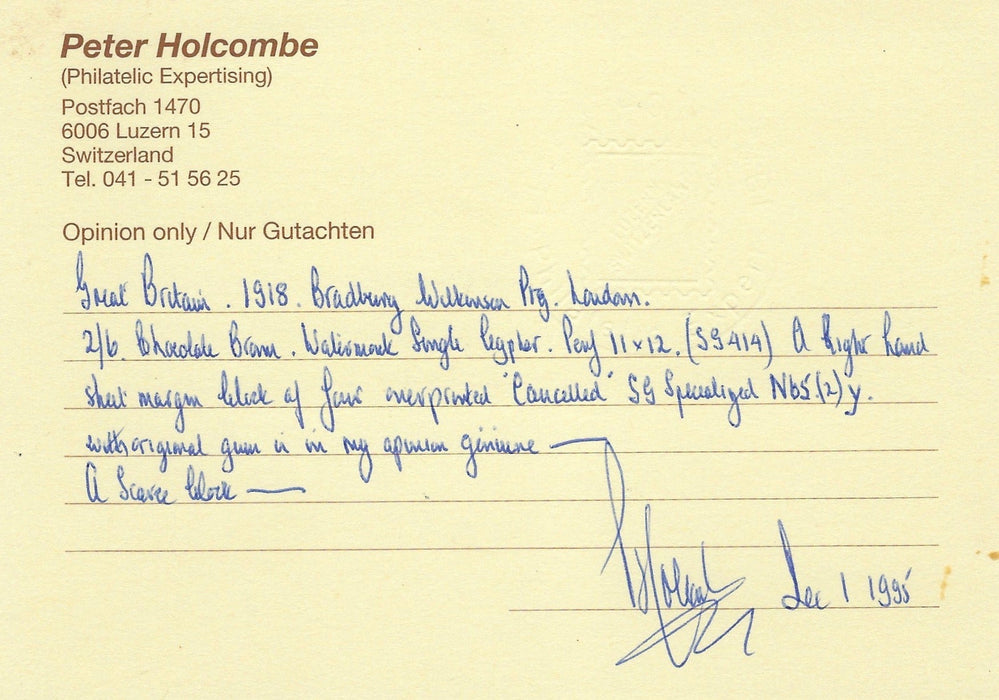 Peter Holcombe
(Philatelic Expertising)
Postfach 1470
6006 Luzern 15
Switzerland
Tel. 041 - 51 56 25
Opinion only / Nur Gutachten
Great Britain. 1918. Bradbury Wilkinson Ptg. London.
2/6. Chocolate Brown. Watermark Single Cypher. Perf 11x12. (SG414) A Right hand
sheet margin block of four overprinted "Cancelled" SG Specialized N65.(2)y.
with original gum is in my opinion genuine
A Scarce block
Dec 1 1995